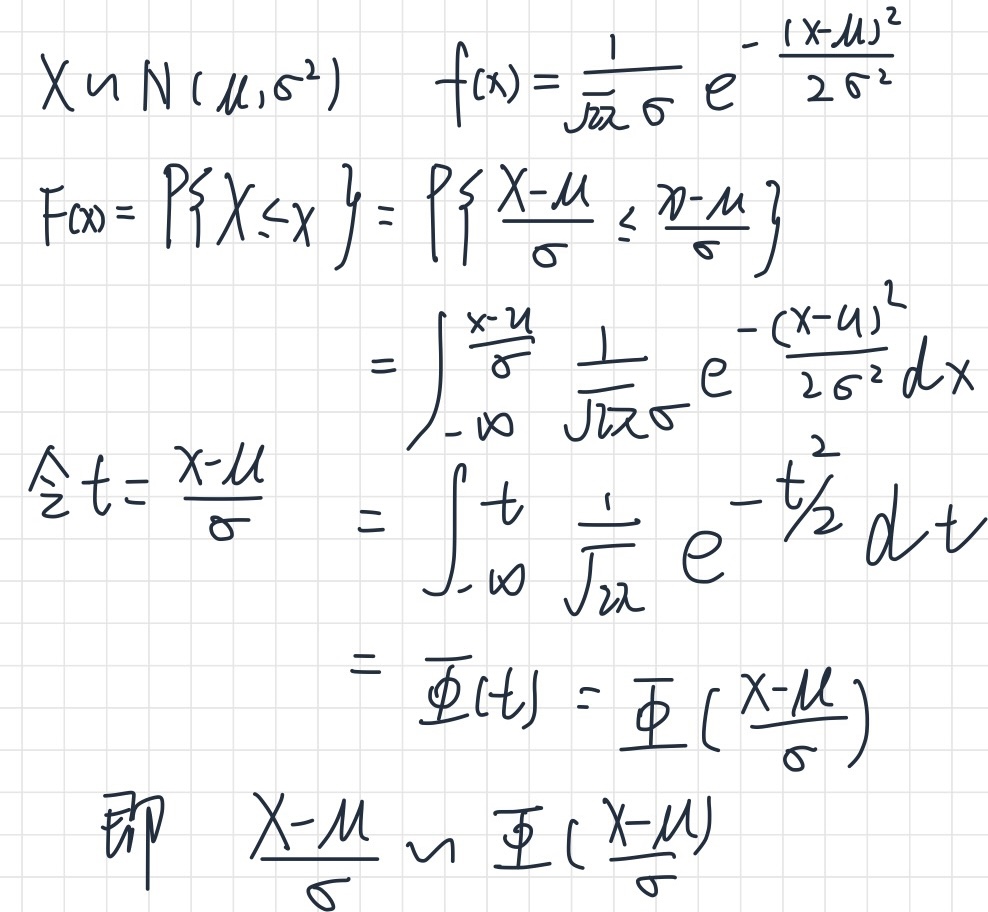 X ∽ N(μ,σ²)   f(x) = \frac{1}{\sqrt{2π} σ} e^{-\frac{(x-μ)^2}{2σ^2}}
F(x) = P{X ≤ x} = P{\frac{X-μ}{σ} ≤ \frac{x-μ}{σ}}
= \int_{-∞}^{\frac{x-μ}{σ}} \frac{1}{\sqrt{2π}σ} e^{-\frac{(x-μ)^2}{2σ^2}} dx
令 t = \frac{x-μ}{σ}   = \int_{-∞}^{t} \frac{1}{\sqrt{2π}} e^{-t^2/2} dt
= Φ(t) = Φ(\frac{x-μ}{σ})
即 \frac{X-μ}{σ} ∽ Φ(\frac{x-μ}{σ})